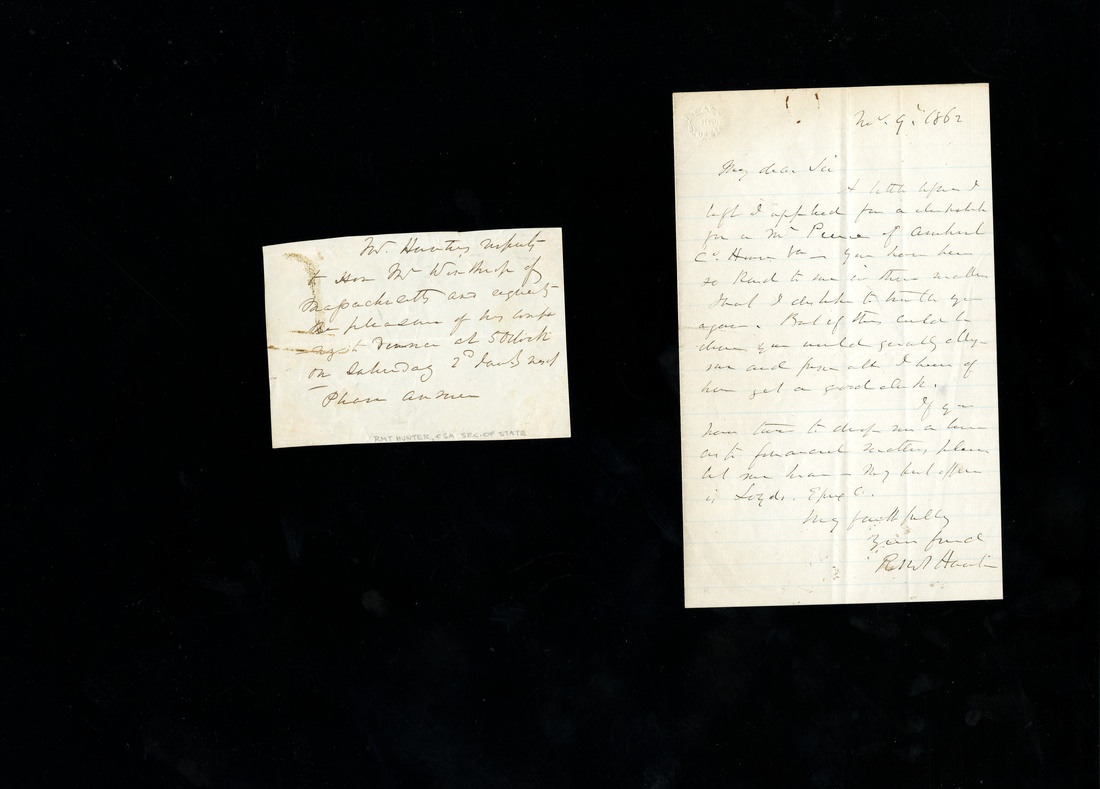 Mr. Hunter's respects
to Hon Mr Winthrop of
Massachusetts and requests
the pleasure of his comp
at Dinner at 5 O'Clock
on Saturday 2d next
Please answer
RMT HUNTER, CSA SEC. OF STATE
9 1862
My dear Sir
A little before I
left I applied for a clerkship
for a Mr of Amherst
Co. Va - You have been
so kind to me in these matters
that I dislike to trouble you
again. But if this could be
done you would greatly oblige
me and from all I hear of
him get a good clerk.
If you
have time to drop me a line
as to financial matters please
let me hear - My post office
is Loyds. Essex C.
Very faithfully
Your friend
R M T Hunter